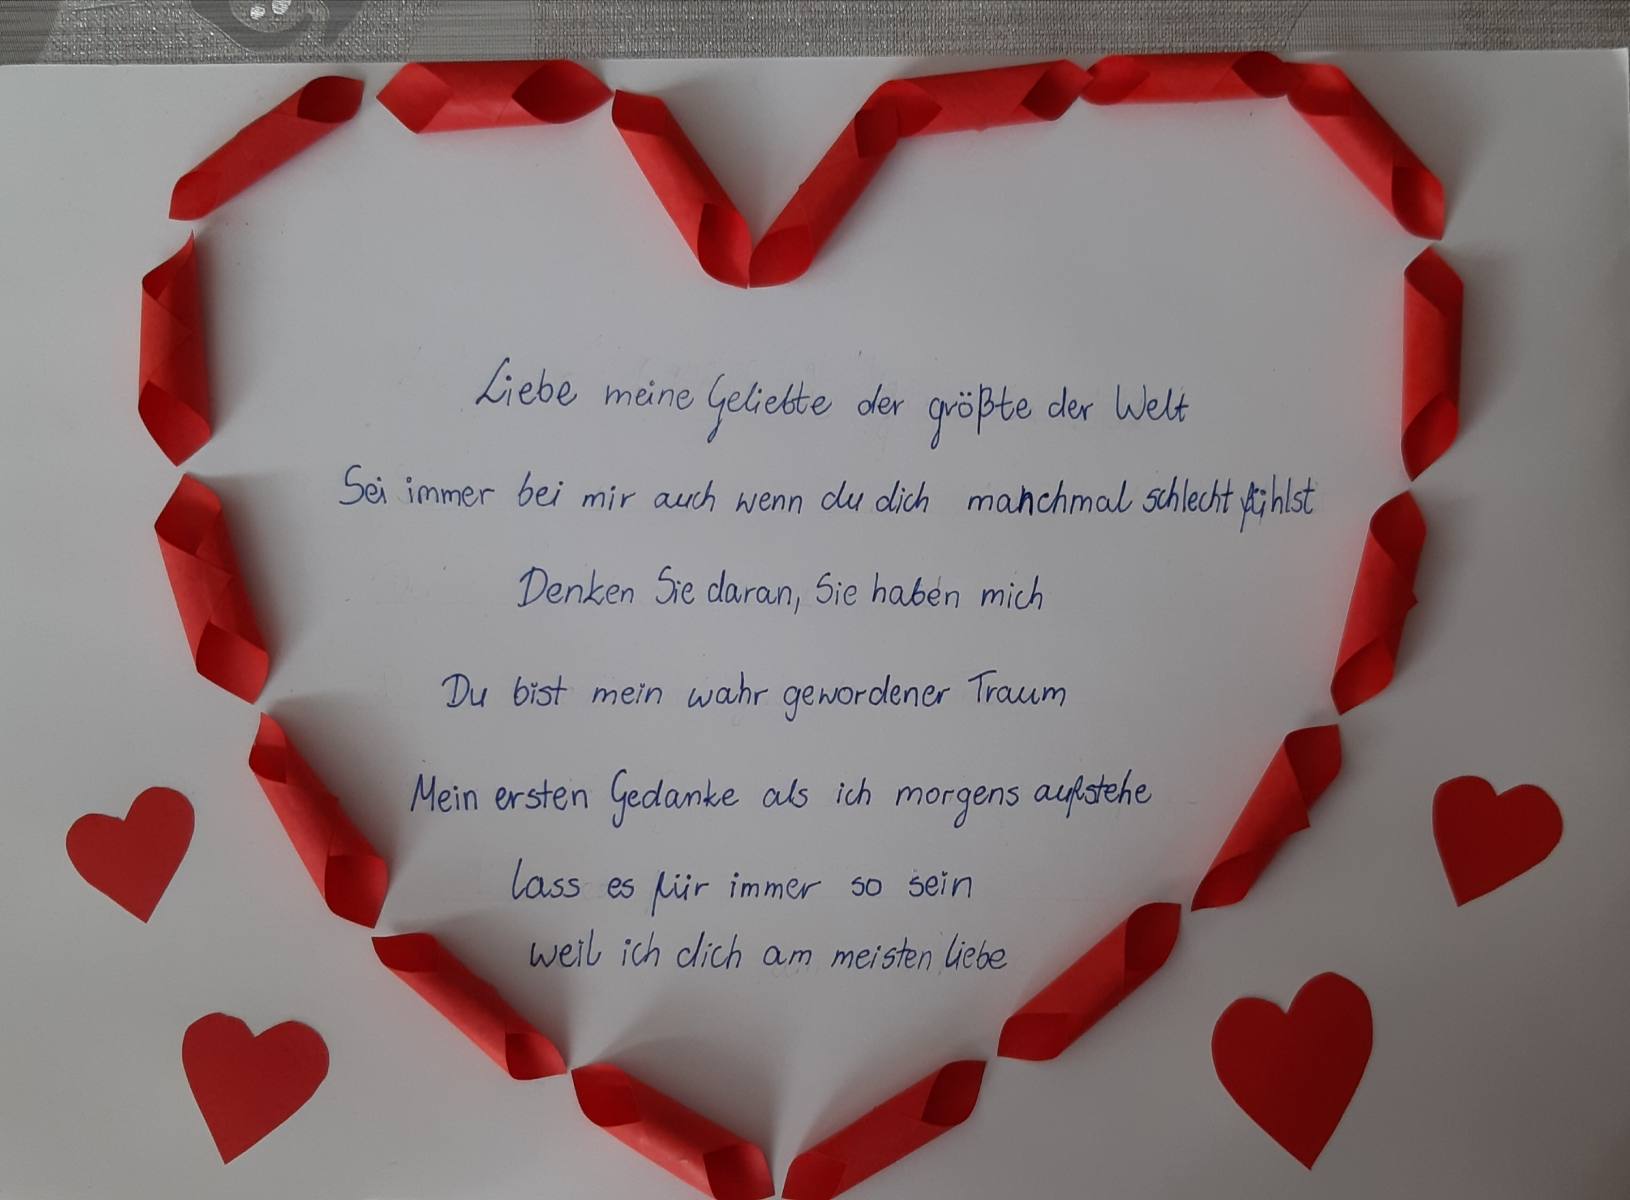 Liebe meine Geliebte der größte der Welt
Sei immer bei mir auch wenn du dich manchmal schlecht fühlst
Denken Sie daran, Sie haben mich
Du bist mein wahr gewordener Traum
Mein ersten Gedanke als ich morgens aufstehe
lass es für immer so sein
weil ich dich am meisten liebe